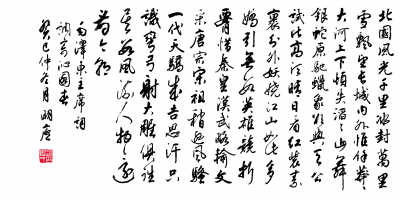 北國風光千里冰封萬里
雪飄望長城内外惟餘莽々
大河上下頓失滔々山舞
銀蛇原馳蠟象欲與天公
試比高須晴日看紅裝素
裹分外妖嬈江山如此多
嬌引無數英雄競折
腰惜秦皇漢武略輸文
采唐宗宋祖稍遜風騷
一代天驕成吉思汗只
識彎弓射大雕俱往
矣數風流人物還
看今朝
毛澤東主席詞
調寄沁園春
癸巳仲冬月明